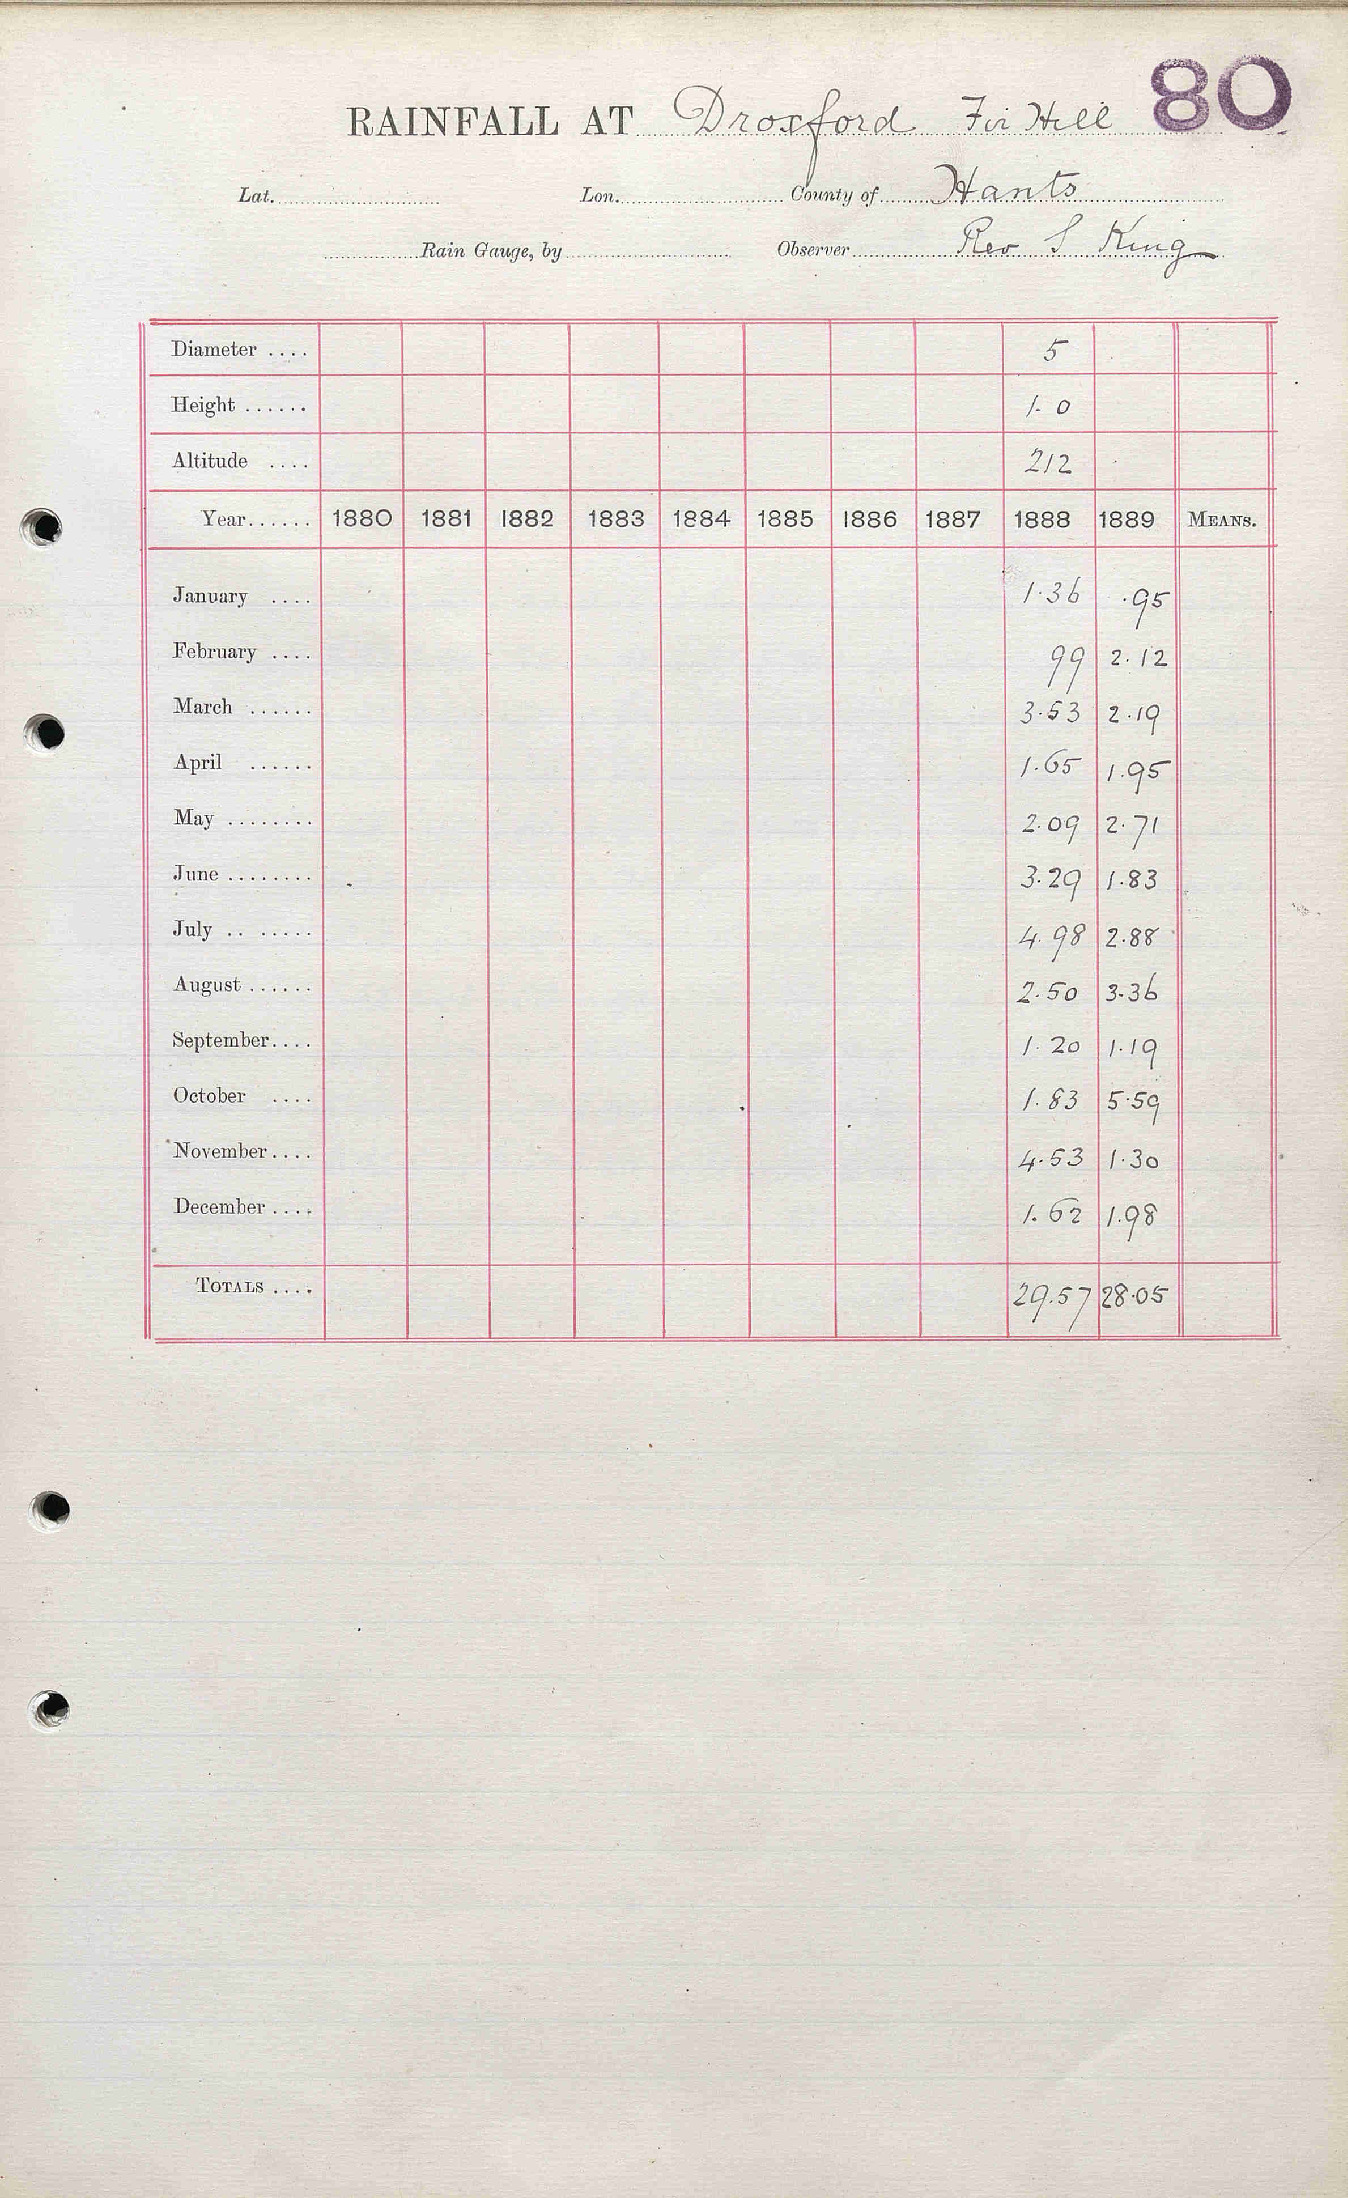 80
RAINFALL AT Droxford Fir Hill
Lat. Lon. County of Hants
Rain Gauge, by Observer Rev S King
Diameter .... 5
Height ...... 1.0
Altitude .... 212
Year...... 1880 1881 1882 1883 1884 1885 1886 1887 1888 1889 MEANS.
January .... 1.36 .95
February .... 99 2.12
March ...... 3.53 2.19
April ...... 1.65 1.95
May ........ 2.09 2.71
June ........ 3.29 1.83
July .. ..... 4.98 2.88
August ...... 2.50 3.36
September.... 1.20 1.19
October .... 1.83 5.59
November.... 4.53 1.30
December .... 1.62 1.98
TOTALS .... 29.57 28.05